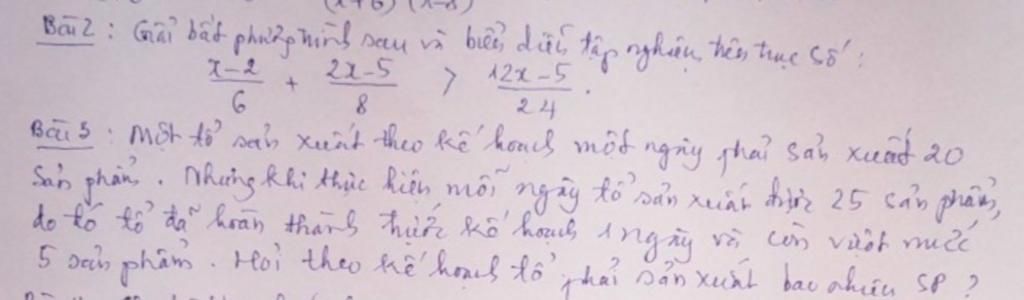 (x+6) (x-8)
Bài 2 : Giải bất phương trình sau và biểu diễn tập nghiệm trên trục số :
x-2/6 + 2x-5/8 > 12x-5/24 .
Bài 3 : Một tổ sản xuất theo kế hoạch mỗi ngày phải sản xuất 20
sản phẩm . Nhưng khi thực hiện mỗi ngày tổ sản xuất được 25 sản phẩm,
do đó tổ đã hoàn thành trước kế hoạch 1 ngày và còn vượt mức
5 sản phẩm . Hỏi theo kế hoạch tổ phải sản xuất bao nhiêu SP ?